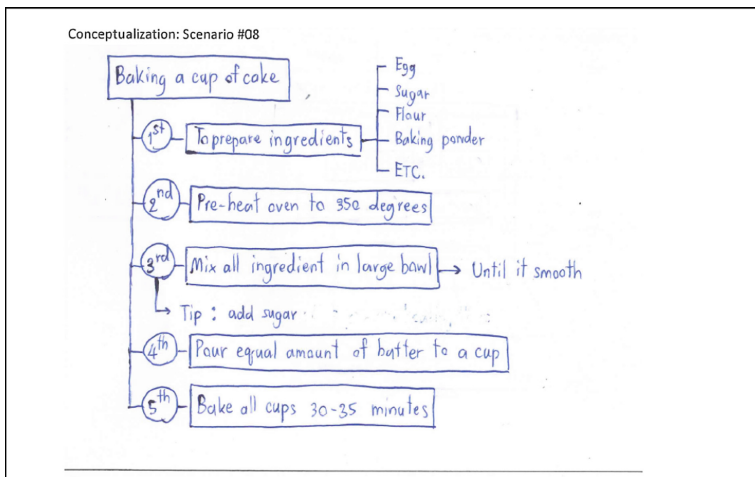 Conceptualization: Scenario #08
Baking a cup of cake
1st To prepare ingredients
Egg
Sugar
Flour
Baking ponder
ETC.
2nd Pre-heat oven to 350 degrees
3rd Mix all ingredient in large bowl → Until it smooth
Tip : add sugar
4th Pour equal amount of batter to a cup
5th Bake all cups 30-35 minutes